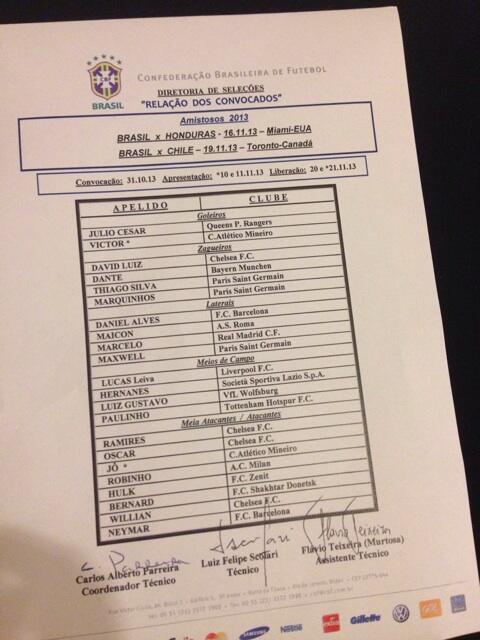 CBF
BRASIL
CONFEDERAÇÃO BRASILEIRA DE FUTEBOL
DIRETORIA DE SELEÇÕES
"RELAÇÃO DOS CONVOCADOS"
Amistosos 2013
BRASIL x HONDURAS - 16.11.13 – Miami-EUA
BRASIL x CHILE – 19.11.13 – Toronto-Canadá
Convocação: 31.10.13 Apresentação: *10 e 11.11.13 Liberação: 20 e *21.11.13
APELIDO CLUBE
Goleiros
JULIO CESAR Queens P. Rangers
VICTOR * C.Atlético Mineiro
Zagueiros
DAVID LUIZ Chelsea F.C.
DANTE Bayern Munchen
THIAGO SILVA Paris Saint Germain
MARQUINHOS Paris Saint Germain
Laterais
DANIEL ALVES F.C. Barcelona
MAICON A.S. Roma
MARCELO Real Madrid C.F.
MAXWELL Paris Saint Germain
Meios de Campo
LUCAS Leiva Liverpool F.C.
HERNANES Società Sportiva Lazio S.p.A.
LUIZ GUSTAVO VfL Wolfsburg
PAULINHO Tottenham Hotspur F.C.
Meia Atacantes / Atacantes
RAMIRES Chelsea F.C.
OSCAR Chelsea F.C.
JÔ * C.Atlético Mineiro
ROBINHO A.C. Milan
HULK F.C. Zenit
BERNARD F.C. Shakhtar Donetsk
WILLIAN Chelsea F.C.
NEYMAR F.C. Barcelona
C. Parreira
Flávio Teixeira
Carlos Alberto Parreira
Coordenador Técnico
Luiz Felipe Scolari
Técnico
Flávio Teixeira (Murtosa)
Assistente Técnico
MasterCard SAMSUNG Nestlé Gillette